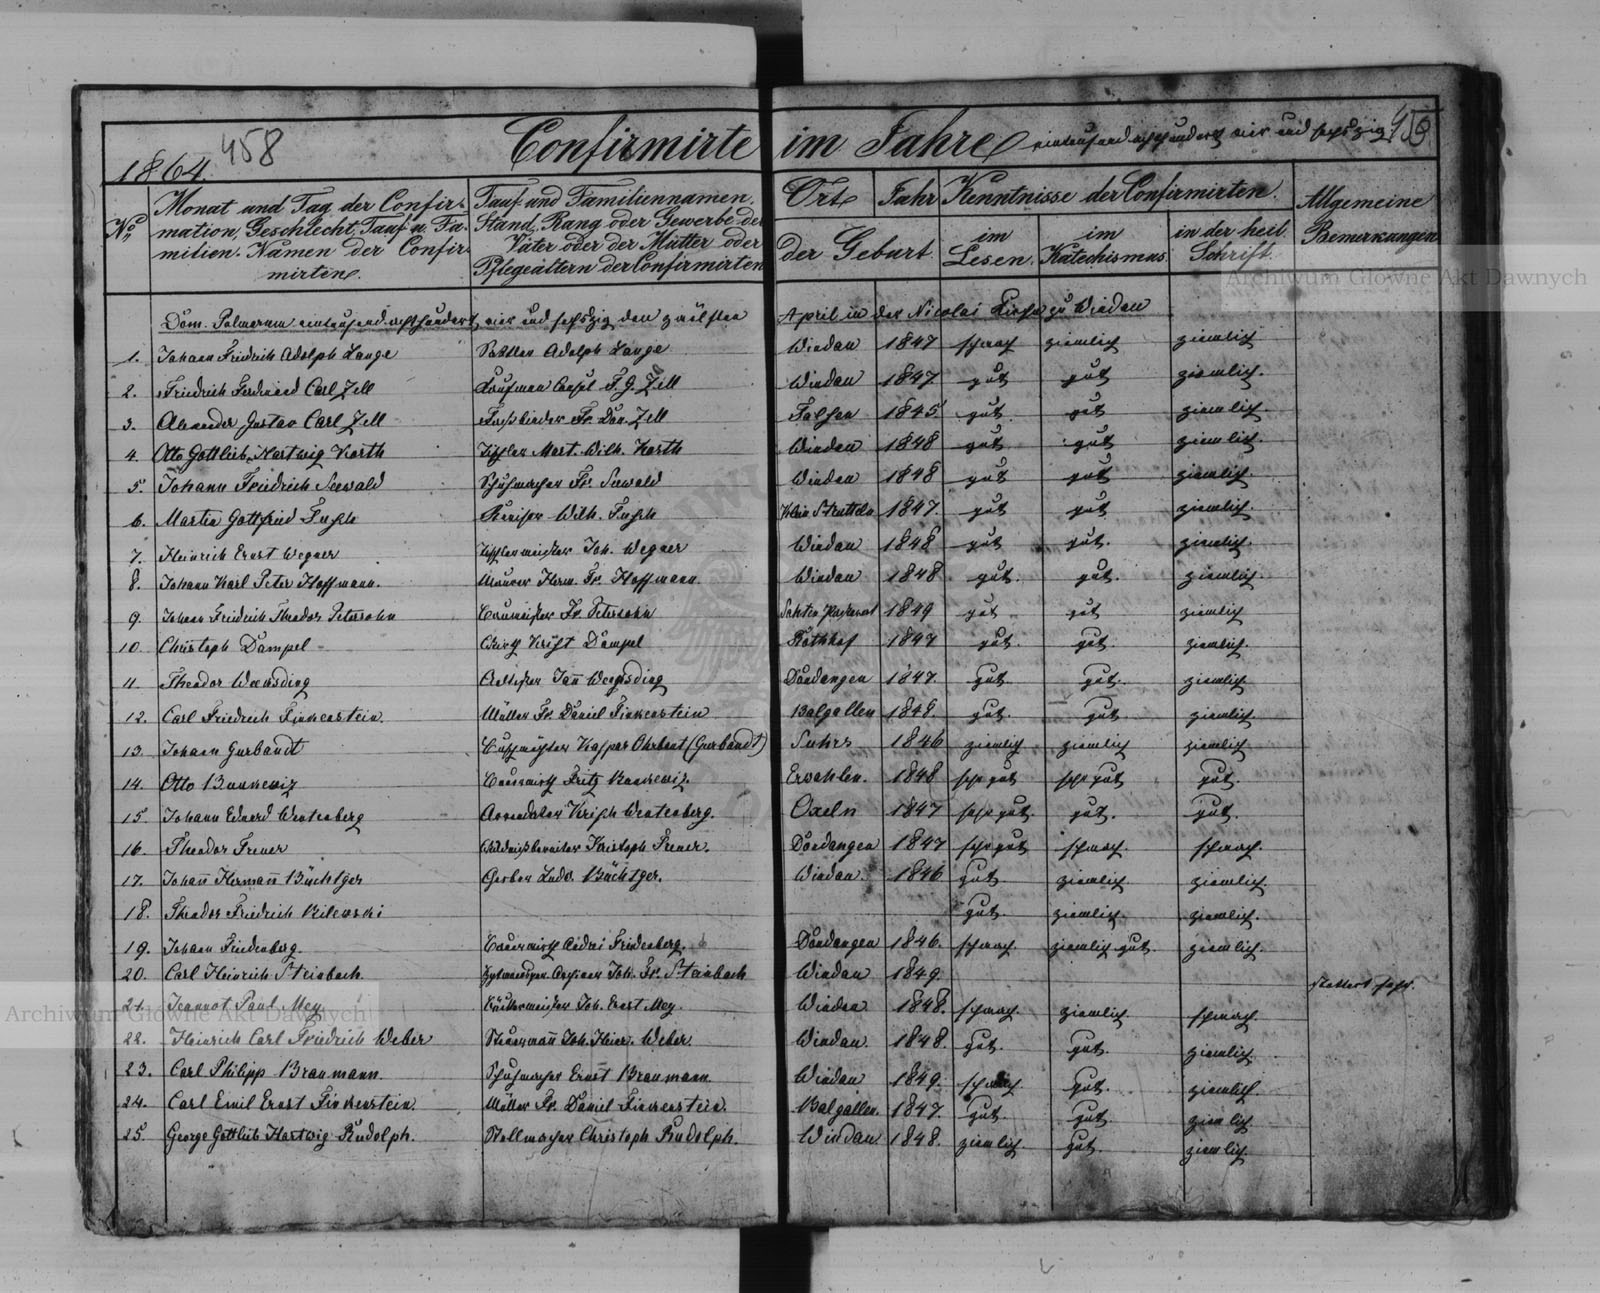 458
Confirmirte im Jahre eintausend achthundert vier und sechszig
1864.
No.
Monat und Tag der Confir-
mation, Geschlecht, Tauf u. Fa-
milien Namen der Confir-
mirten.
Tauf und Familiennamen,
Stand, Rang oder Gewerbe der
Väter oder der Mütter oder
Pflegeältern der Confirmirten
Ort Jahr
der Geburt.
Kenntnisse der Confirmirten.
im Lesen. im Katechismus. in der heil. Schrift.
Allgemeine
Bemerkungen
Dom. Palmarum eintausend achthundert vier und sechszig den zwölften April in der Nicolai Kirche zu Windau
1. Johann Friedrich Adolph Lange Adolph Lange Windau 1847 schwach ziemlich ziemlich
2. Friedrich Ferdinand Carl Zell Kaufmann Consul F. G. Zell Windau 1847 gut gut ziemlich.
3. Alexander Gustav Carl Zell Fassbinder Fr. Dan. Zell 1845 gut gut ziemlich.
4. Otto Gottlieb Hartwig Korth Tischler Mart. Wilh. Korth Windau 1848 gut gut ziemlich.
5. Johann Friedrich Seewald Schuhmacher Fr. Seewald Windau 1848 gut gut ziemlich
6. Martin Gottfried Wilh. Klein 1847. gut gut ziemlich.
7. Heinrich Ernst Wegner Tischlermeister Joh. Wegner Windau 1848 gut gut. ziemlich.
8. Johann Karl Peter Hoffmann. Maurer Herm. Fr. Hoffmann Windau 1848. gut. gut. ziemlich.
9. Johann Friedrich Theodor Petersohn Fr. Petersohn 1849 gut gut ziemlich
10. Christoph Dampel Krist Dampel Rothhof 1847 gut. gut. ziemlich.
11. Theodor Jann Dondangen 1847. gut gut. ziemlich
12. Carl Friedrich Finkenstein. Müller Fr. Daniel Finkenstein Balgallen 1848. gut. gut ziemlich
13. Johann Gurbandt Kaspar (Gurbandt) Suhrs 1846 ziemlich ziemlich ziemlich
14. Otto Bankewiz Fritz Bankewiz. Erwahlen. 1848 sehr gut sehr gut gut.
15. Johann Eduard Westerberg Arrendator Krisch Westerberg. Oxeln 1847 sehr gut. gut. gut.
16. Theodor Freuer Kristoph Freuer. Dondangen 1847 sehr gut schwach schwach.
17. Johann Hermann Büchtger Gerber Ludw. Büchtger. Windau 1846 gut ziemlich ziemlich.
18. Theodor Friedrich Kilewski gut ziemlich. ziemlich.
19. Johann Friedenberg. Andrei Friedenberg. Dondangen 1846. schwach. ziemlich gut ziemlich.
20. Carl Heinrich Steinbach. Joh. Fr. Steinbach Windau 1849.
21. Jeannot Paul Mey Joh. Ernst Mey. Windau 1848. schwach. ziemlich schwach.
22. Heinrich Carl Friedrich Weber Steuermann Joh. Heinr. Weber. Windau. 1848. gut. gut. ziemlich.
23. Carl Philipp Braumann. Schuhmacher Ernst Braumann. Windau 1849. schwach gut. ziemlich.
24. Carl Emil Ernst Finkenstein. Müller Fr. Daniel Finkenstein. Balgallen. 1847. gut. gut ziemlich
25. George Gottlieb Hartwig Rudolph. Stellmacher Christoph Rudolph. Windau 1848. ziemlich. gut. ziemlich
Archiwum Główne Akt Dawnych
Archiwum Główne Akt Dawnych